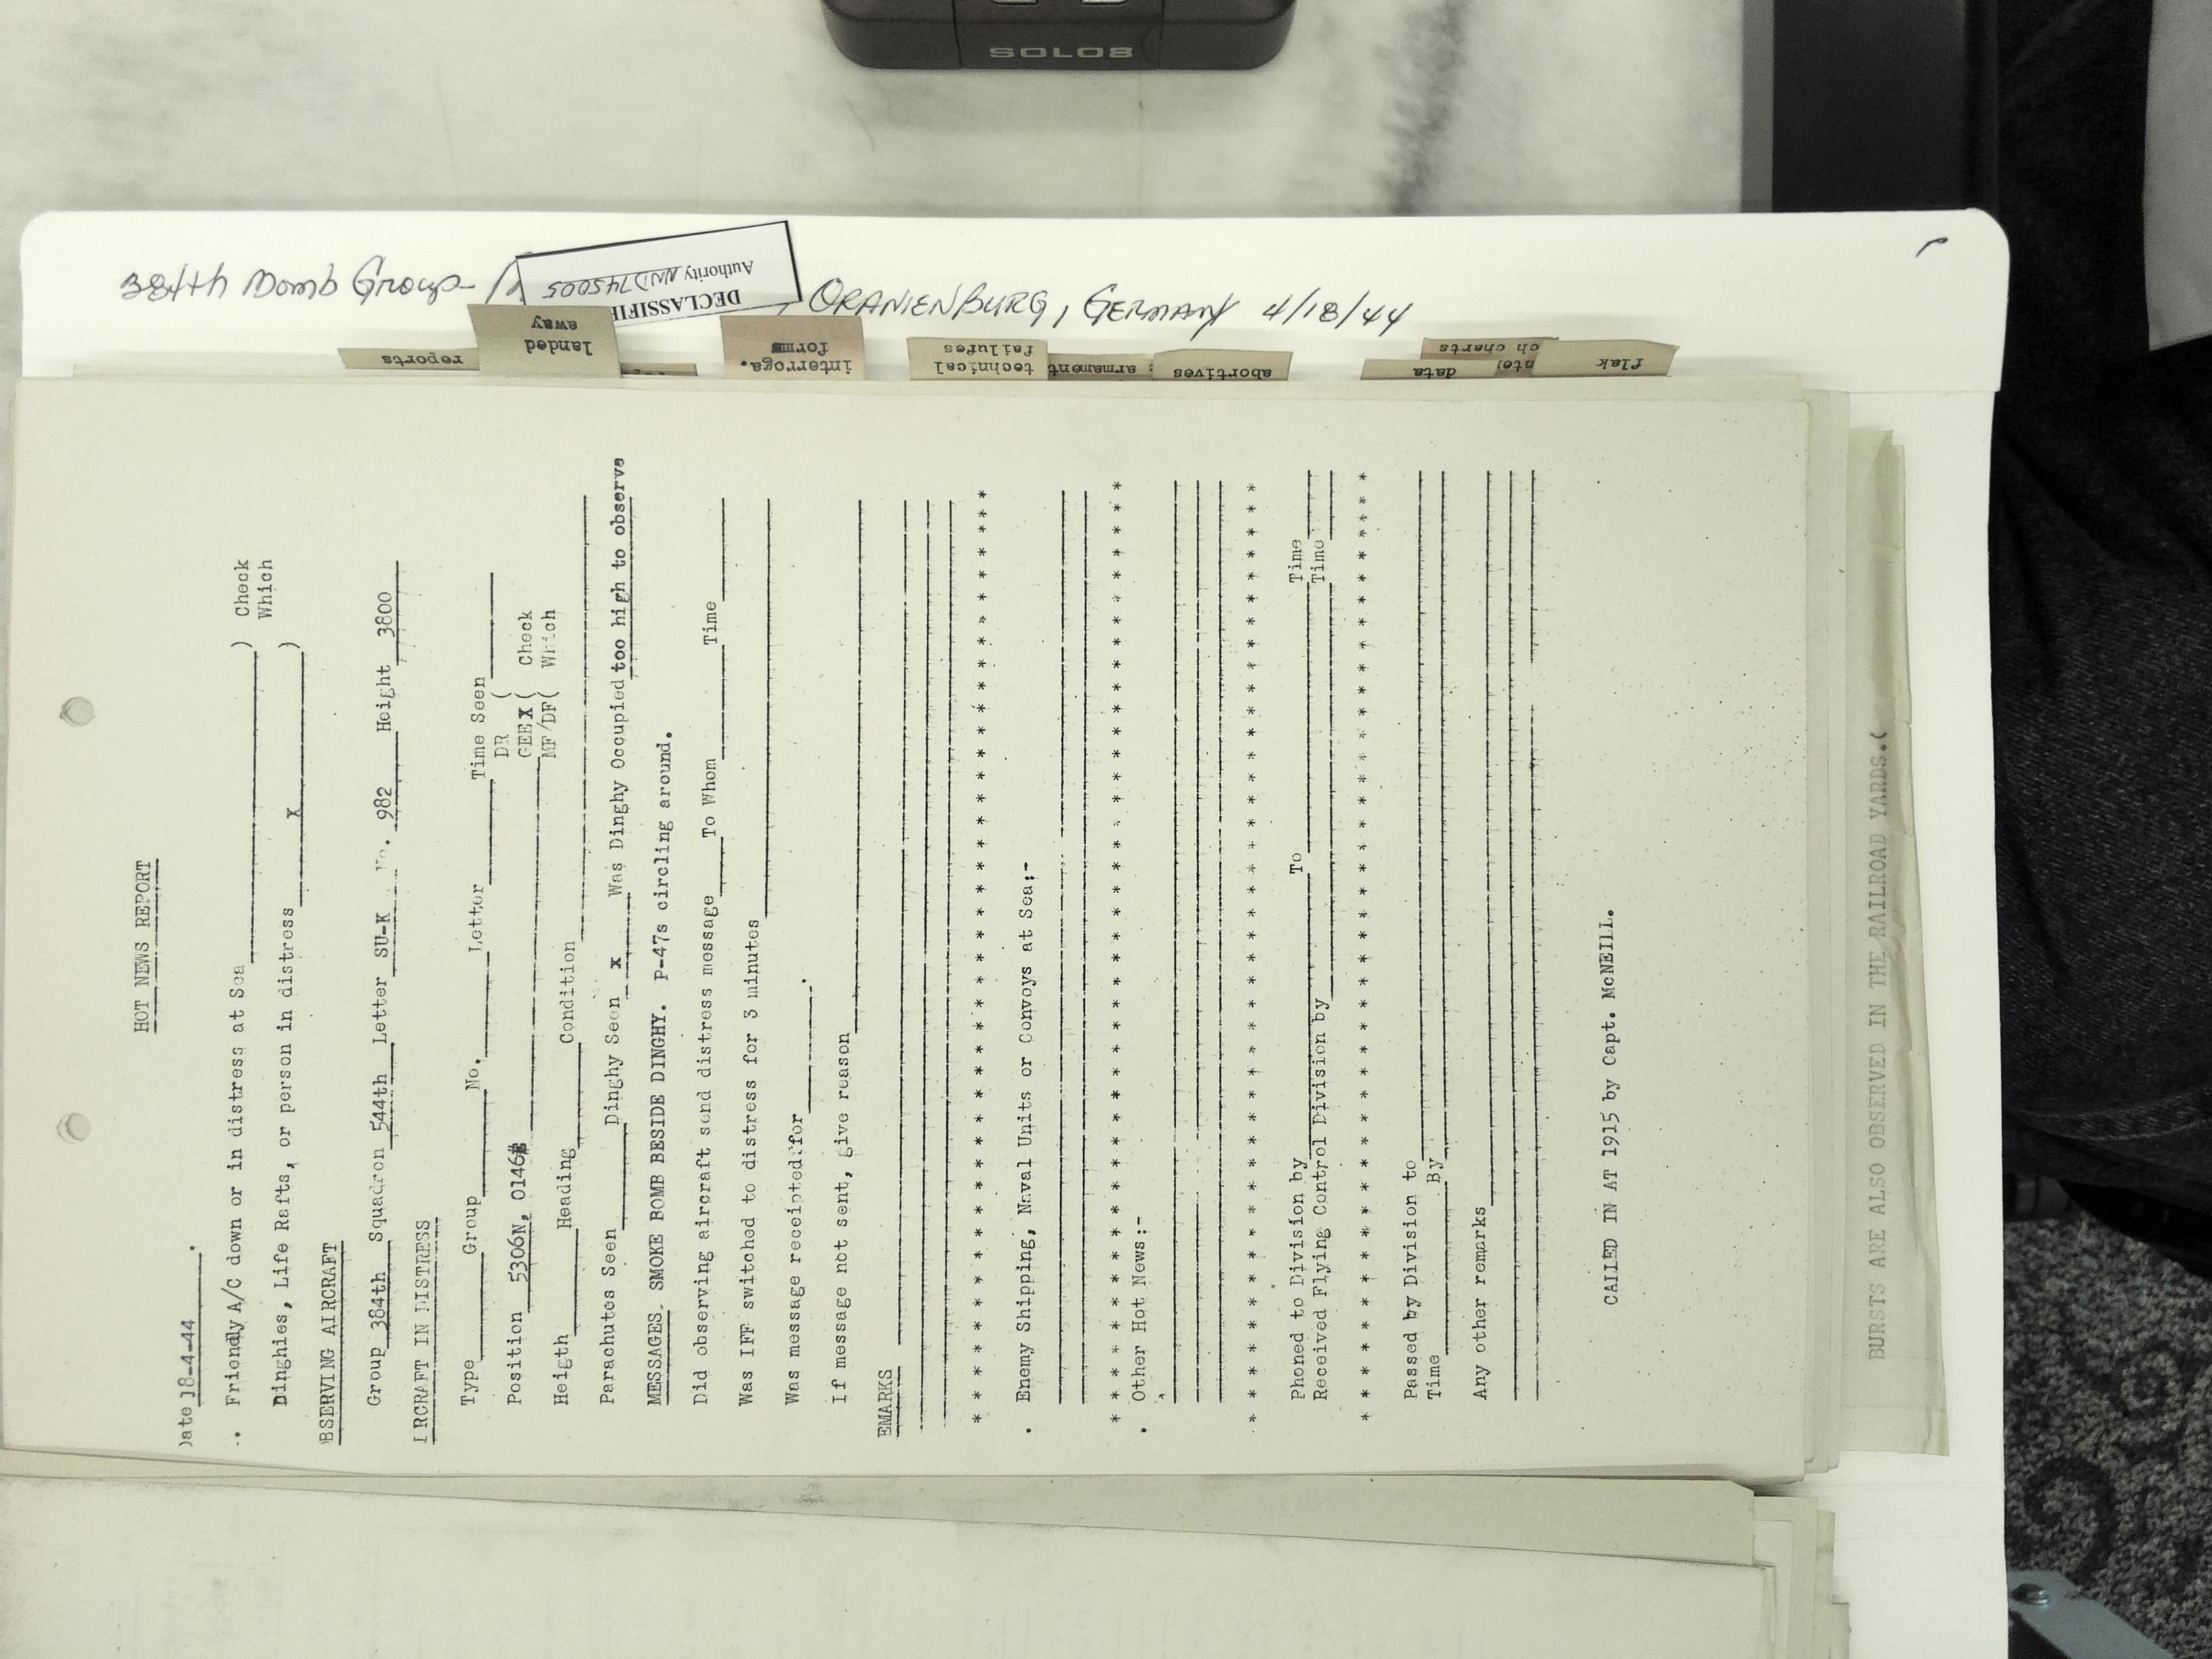 SOLO8
384th Bomb Group
ORANIENBURG, GERMANY 4/18/44
DECLASSIFI
Authority NND 745005
reports
landed
away
interroga.
forms
technical
failures
armament
abortives
data
ch charts
flak
HOT NEWS REPORT
Date 18-4-44 .
Friendly A/C down or in distress at Sea ) Check
Dinghies, Life Rafts, or person in distress x ) Which
BSERVING AIRCRAFT
Group 384th Squadron 544th Letter SU-K No. 982 Height 3800
IRCRAFT IN DISTRESS
Type Group No. Letter Time Seen
DR (
Position 5306N, 0146 GEE X ( Check
MF/DF( Which
Heigth Heading Condition
Parachutes Seen Dinghy Seen x Was Dinghy Occupied too high to observe
MESSAGES. SMOKE BOMB BESIDE DINGHY. P-47s circling around.
Did observing aircraft send distress message To Whom Time
Was IFF switched to distress for 3 minutes
Was message receipted for .
If message not sent, give reason
EMARKS
* * * * * * * * * * * * * * * * * * * * * * * * * * * * * * * * * * *
. Enemy Shipping, Naval Units or Convoys at Sea;-
* * * * * * * * * * * * * * * * * * * * * * * * * * * * * * * * * * *
. Other Hot News;-
* * * * * * * * * * * * * * * * * * * * * * * * * * * * * * * * * * *
Phoned to Division by To Time
Received Flying Control Division by Time
* * * * * * * * * * * * * * * * * * * * * * * * * * * * * * * * * * *
Passed by Division to
Time By
Any other remarks
CALLED IN AT 1915 by Capt. McNEILL.
BURSTS ARE ALSO OBSERVED IN THE RAILROAD YARDS.(